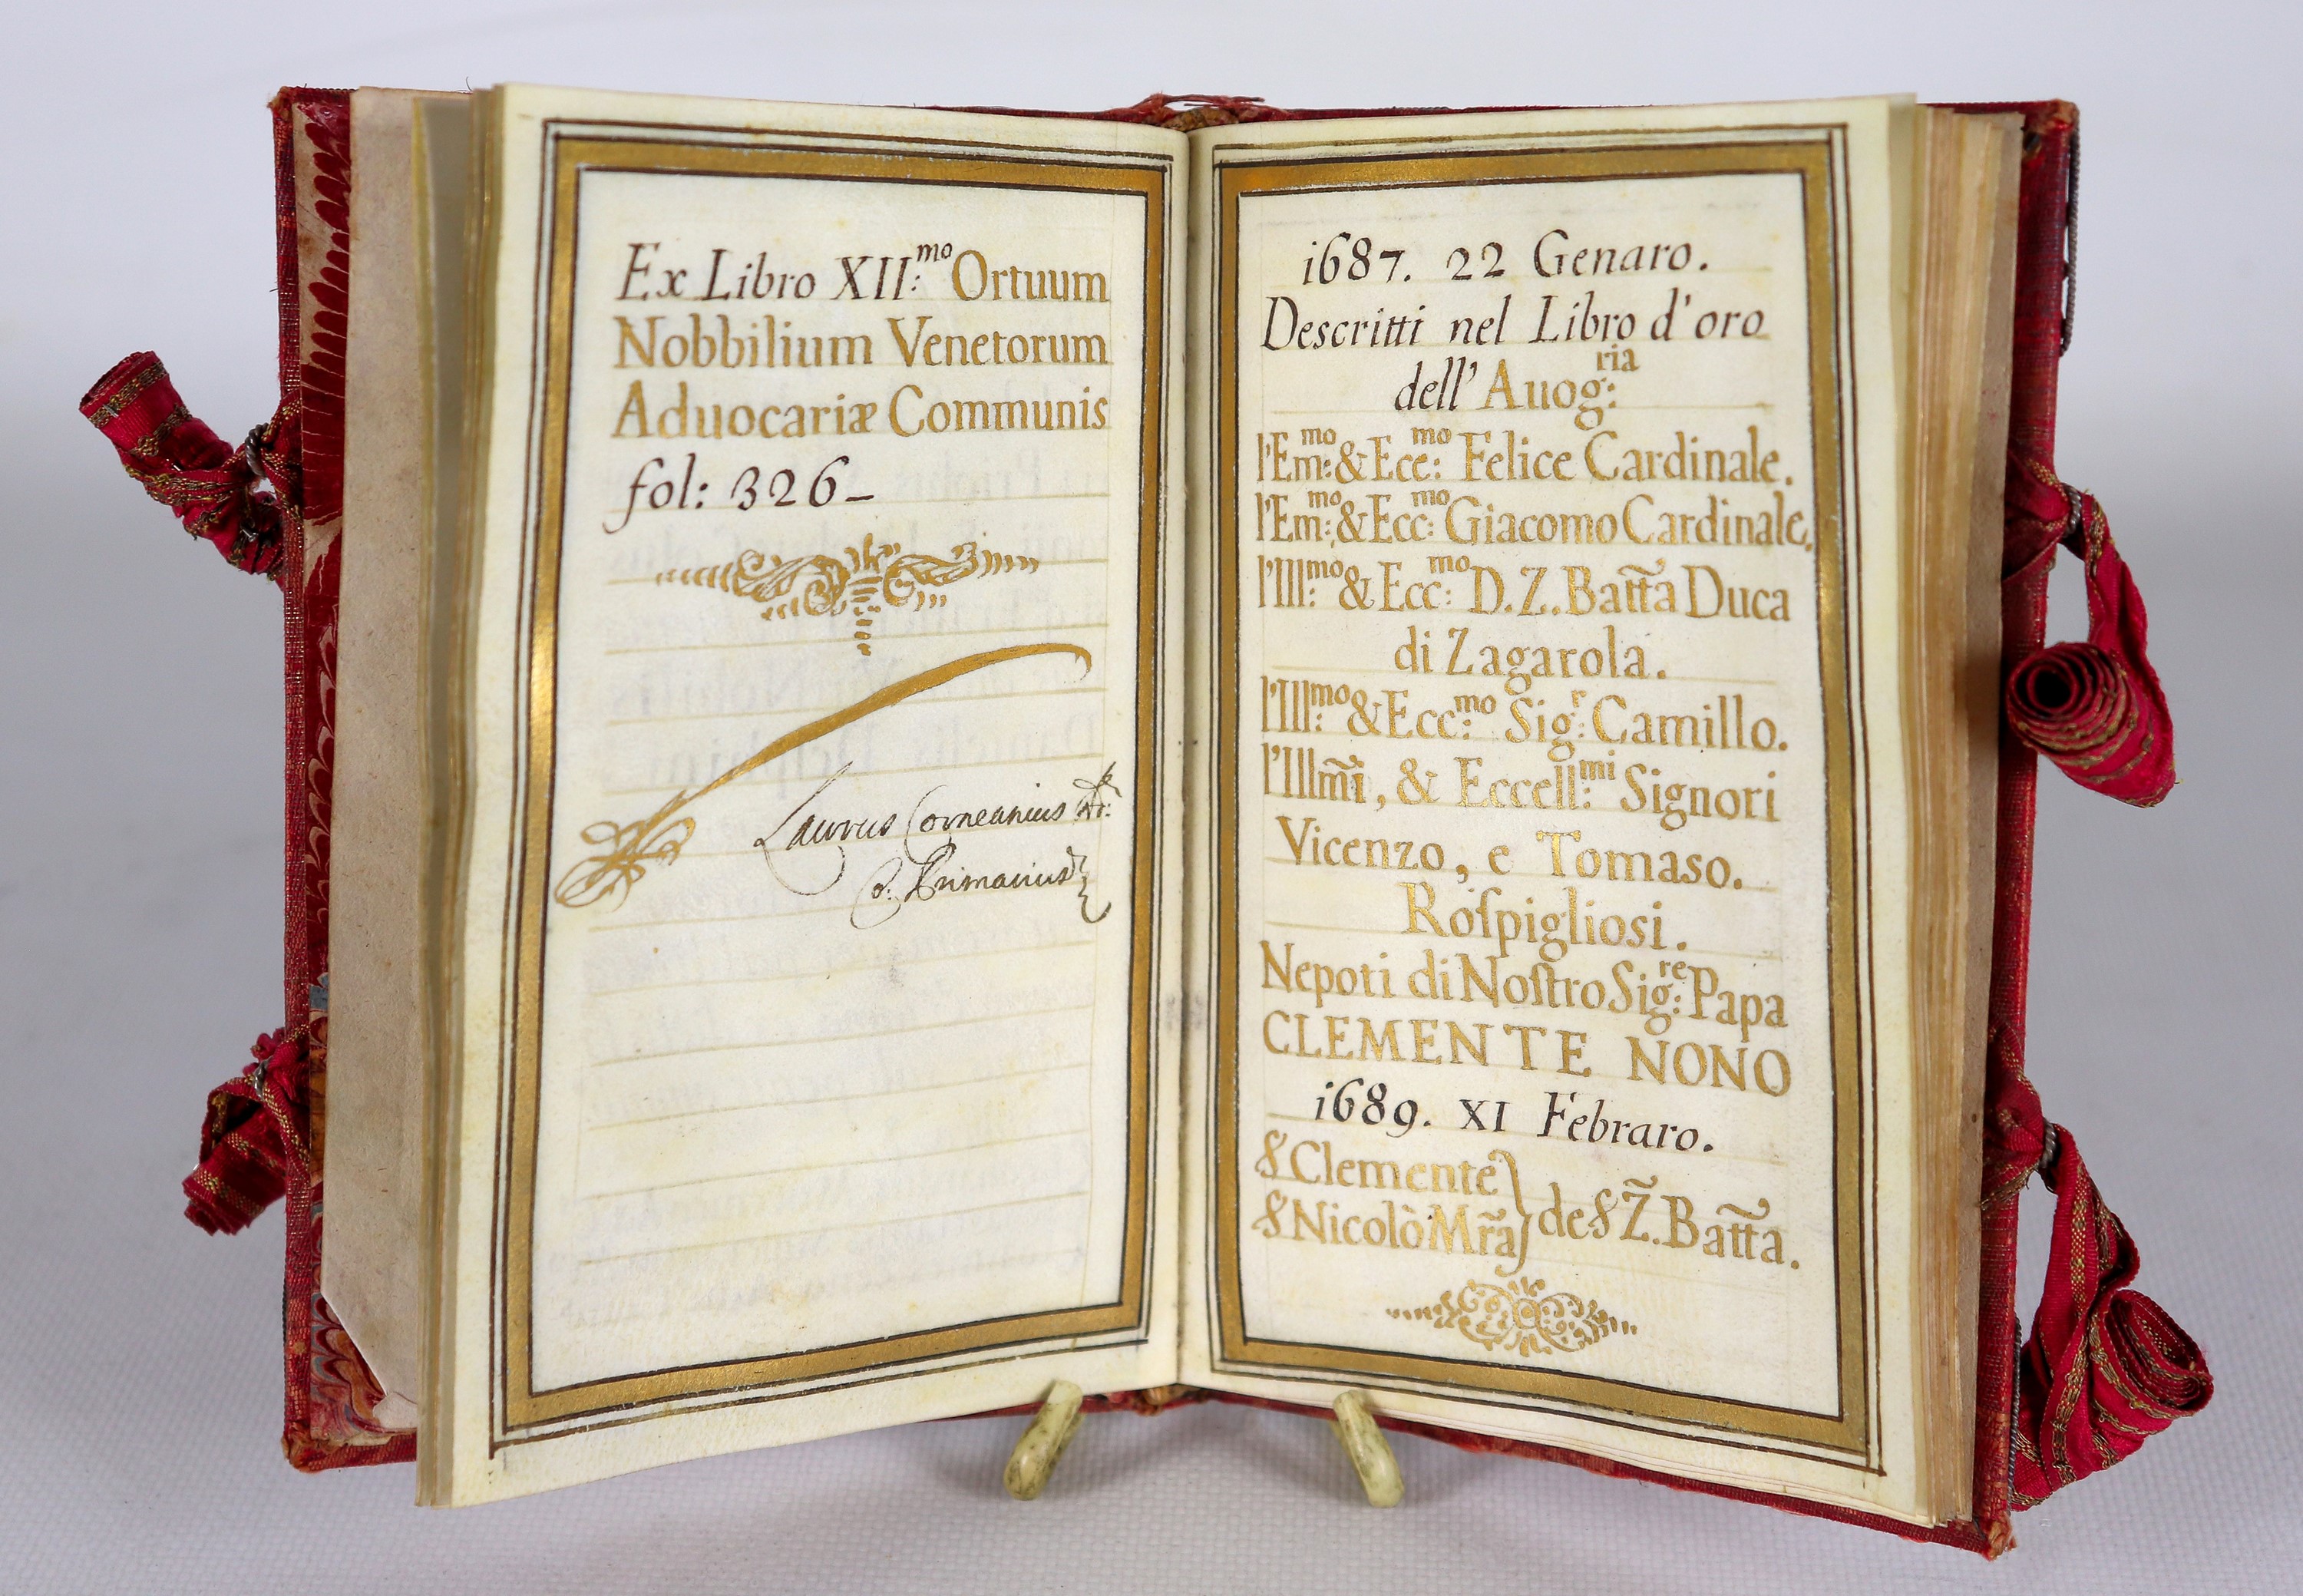 Ex Libro XII:mo Ortuum
Nobbilium Venetorum
Aduocariæ Communis
fol: 326-
Laurus Corneanius
Primarius
i687. 22 Genaro.
Descritti nel Libro d'oro
dell' Auog:ria
l'Em:mo & Ecc:mo Felice Cardinale.
l'Em:mo & Ecc:mo Giacomo Cardinale.
l'Ill:mo & Ecc:mo D. Z. Batt̃a Duca
di Zagarola.
l'Ill:mo & Ecc:mo Sig:r Camillo.
l'Illm̃i, & Eccell:mi Signori
Vicenzo, e Tomaso.
Roſpigliosi.
Nepoti di Noſtro Sig:re Papa
CLEMENTE NONO
i689. XI Febraro.
Clemente
Nicolò Mr̃a } de Z̃. Batt̃a.